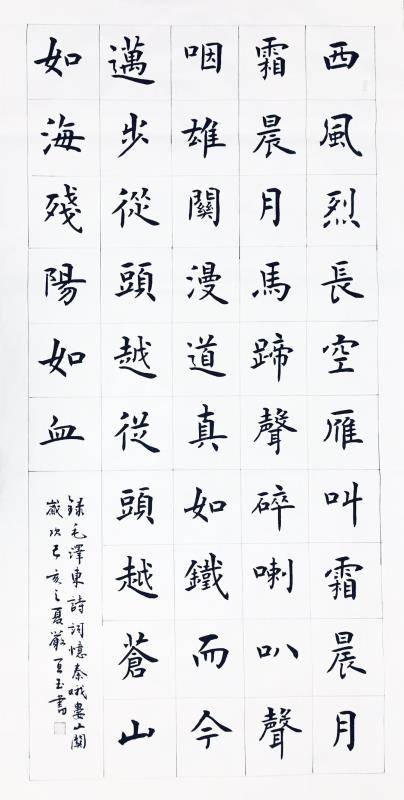 西風烈長空雁叫霜晨月
霜晨月馬蹄聲碎喇叭聲
咽雄關漫道真如鐵而今
邁步從頭越從頭越蒼山
如海殘陽如血
録毛澤東詩詞憶秦娥婁山關
歲次己亥之夏嚴玉書